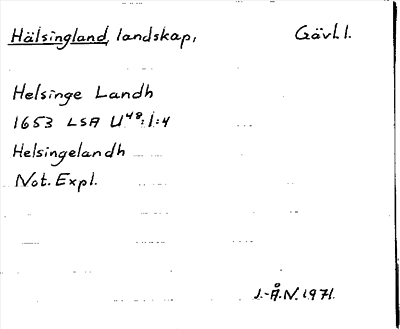 Hälsingland, landskap, Gävl.l.
Helsinge Landh
1653 LSA U48:1:4
Helsingelandh
Not. Expl.
J.-Å.N. 1971.